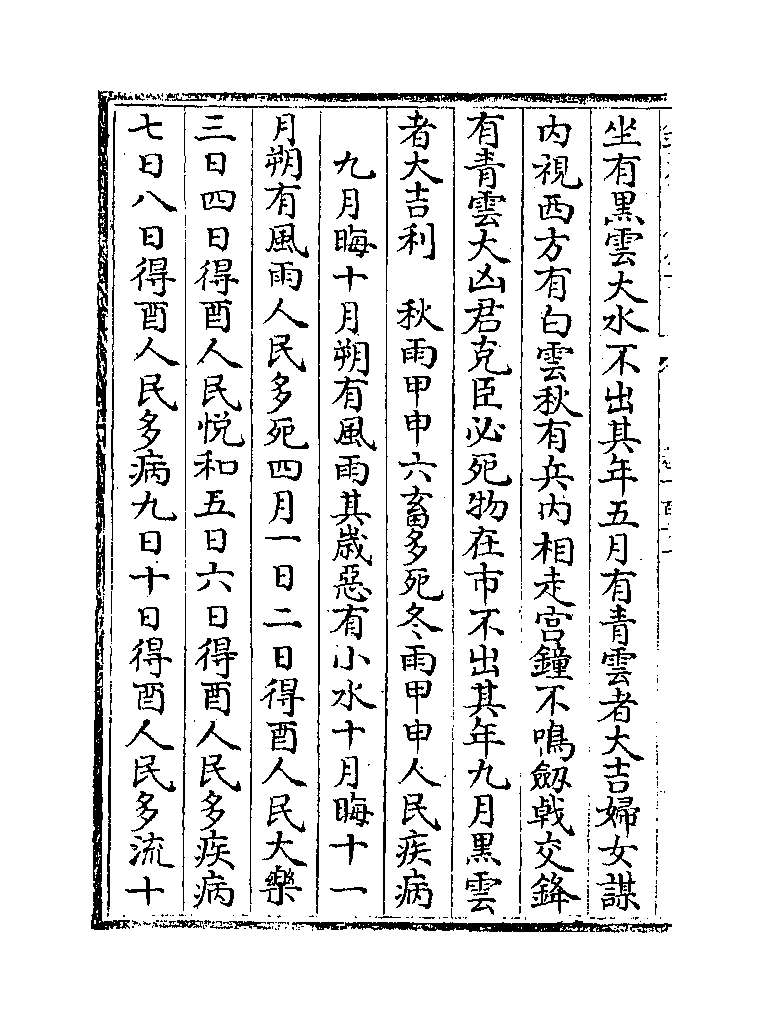 坐有黒雲大水不出其年五月有青雲者大吉婦女謀
内視西方有白雲秋有兵内相走宫鐘不鳴劔㦸交鋒
有青雲大凶君克臣必死物在市不出其年九月黒雲
者大吉利　秋雨甲申六畜多死冬雨甲申人民疾病
　九月晦十月朔有風雨其歳惡有小水十月晦十一
月朔有風雨人民多死四月一日二日得酉人民大樂
三日四日得酉人民悦和五日六日得酉人民多疾病
七日八日得酉人民多病九日十日得酉人民多流十